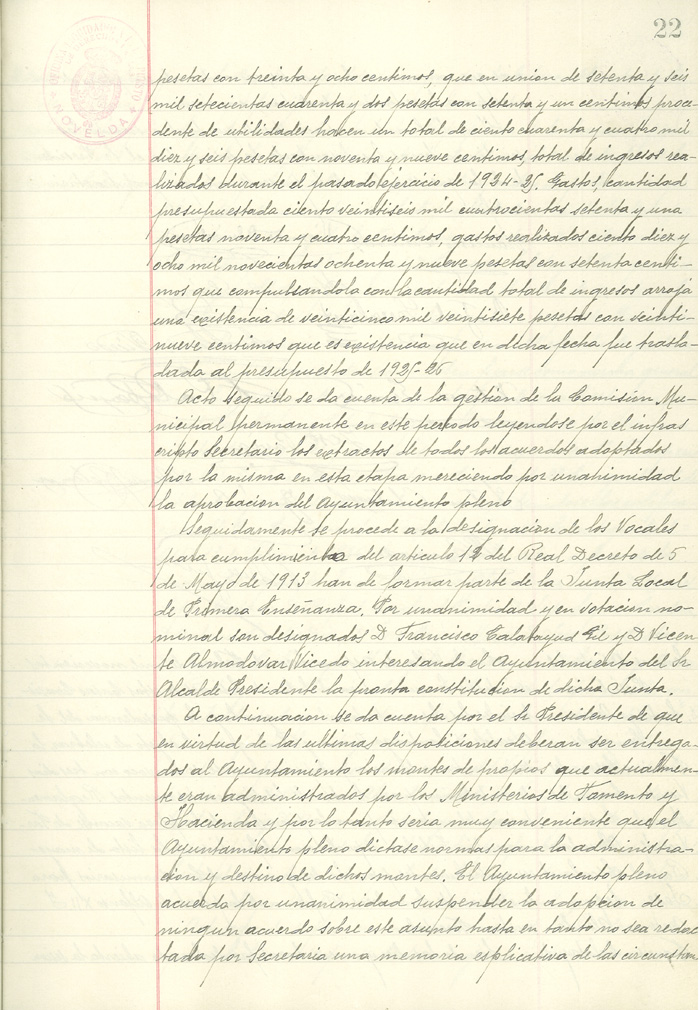 22
NOVELDA
pesetas con treinta y ocho centimos, que en union de setenta y seis
mil setecientas cuarenta y dos pesetas con setenta y un centimos proce-
dente de utilidades hacen un total de ciento cuarenta y cuatro mil
diez y seis pesetas con noventa y nueve centimos, total de ingresos rea-
lizados durante el pasado ejercicio de 1924-25. Gastos, cantidad
presupuestada ciento veintiseis mil cuatrocientas setenta y una
pesetas noventa y cuatro centimos, gastos realizados ciento diez y
ocho mil novecientas ochenta y nueve pesetas con setenta centi-
mos que compulsandola con la cantidad total de ingresos arroja
una existencia de veinticinco mil veintisiete pesetas con veinti-
nueve centimos que es existencia que en dicha fecha fue trasla-
dada al presupuesto de 1925-26
Acto seguido se da cuenta de la gestion de la Comisión Mu-
nicipal permanente en este periodo leyendose por el infras
crito Secretario los extractos de todos los acuerdos adoptados
por la misma en esta etapa mereciendo por unanimidad
la aprobacion del Ayuntamiento pleno
Seguidamente se procede a la designación de los Vocales
para cumplimiento del articulo 12 del Real Decreto de 5
de Mayo de 1913 han de formar parte de la Junta Local
de Primera Enseñanza. Por unanimidad y en votacion no-
minal son designados D Francisco Calatayud Gil y D Vicen
te Almodovar Vicedo interesando el Ayuntamiento del Sr
Alcalde Presidente la pronta constitucion de dicha Junta.
A continuacion se da cuenta por el Sr Presidente de que
en virtud de las ultimas disposiciones deberan ser entrega-
dos al Ayuntamiento los montes de propios que actualmen-
te eran administrados por los Ministerios de Fomento y
Hacienda y por lo tanto seria muy conveniente que el
Ayuntamiento pleno dictase normas para la administra-
cion y destino de dichos montes. El Ayuntamiento pleno
acuerda por unanimidad suspender la adopcion de
ningun acuerdo sobre este asunto hasta en tanto no sea redac
tada por Secretaria una memoria esplicativa de las circunstan